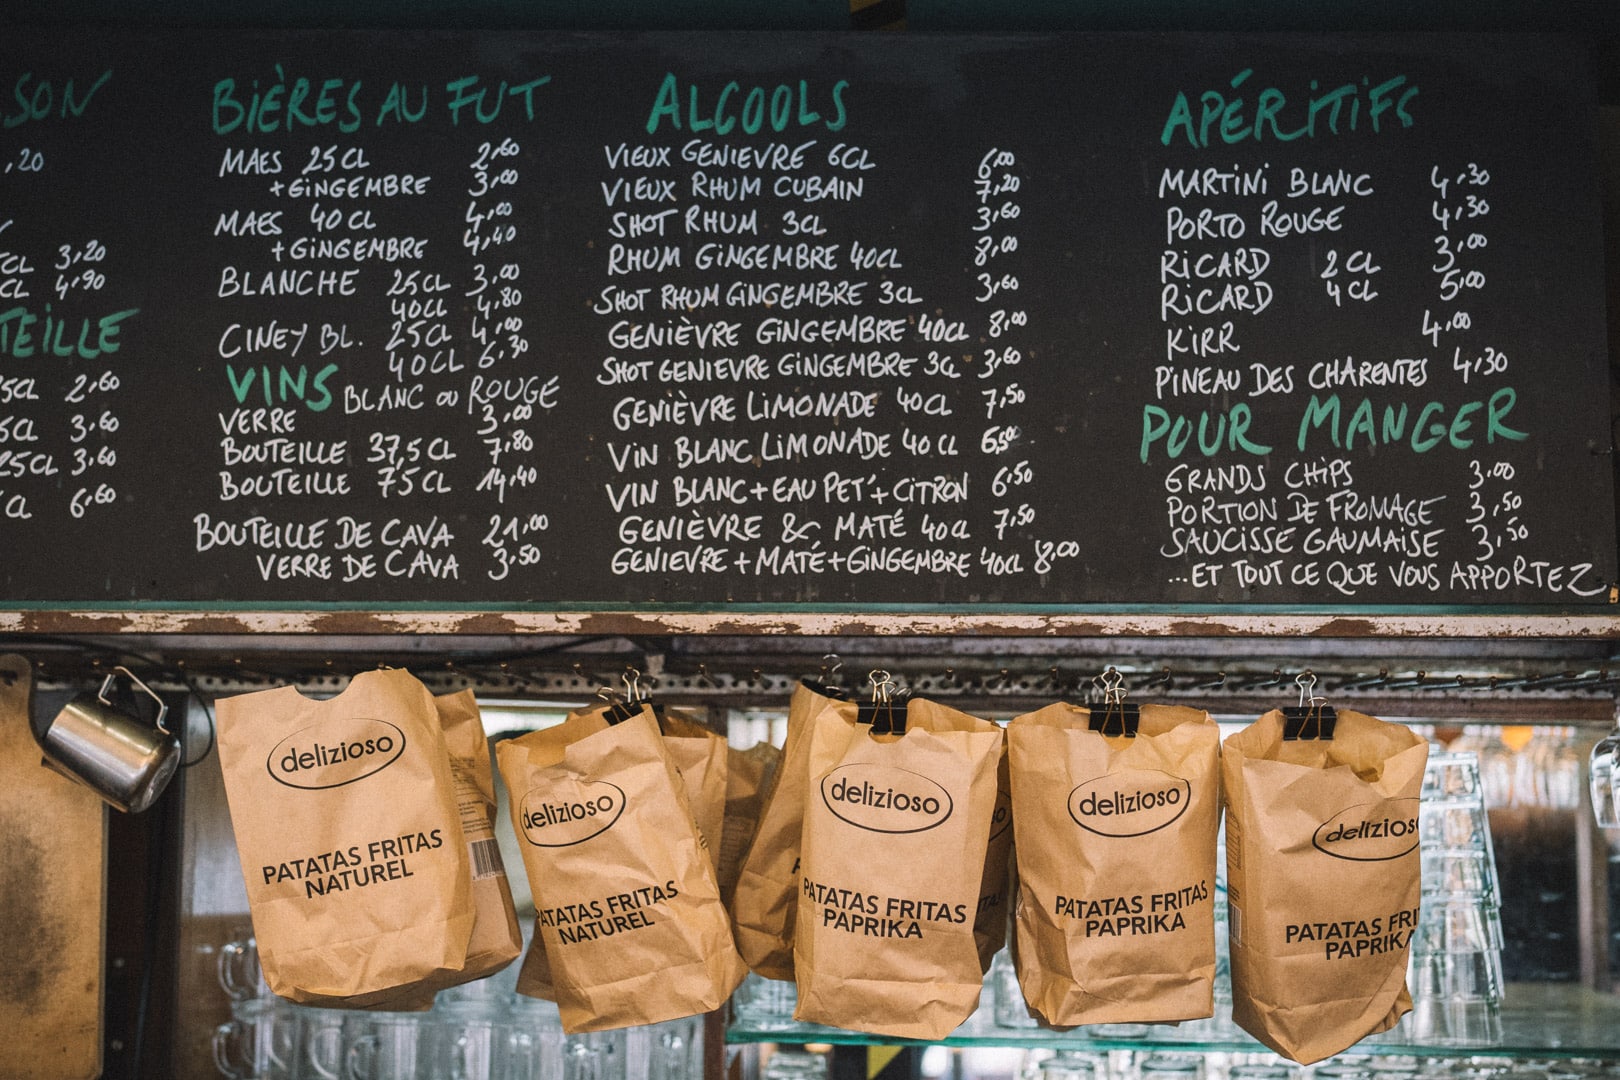 SON
,20
CL 3,20
CL 4,90
TEILLE
5CL 2,60
5CL 3,60
25CL 3,60
CL 6,60
BIÈRES AU FUT
MAES 25CL 2,60
+GINGEMBRE 3,00
MAES 40CL 4,00
+GINGEMBRE 4,40
BLANCHE 25CL 3,00
40CL 4,80
CINEY BL. 25CL 4,00
40CL 6,30
VINS BLANC OU ROUGE
VERRE 3,00
BOUTEILLE 37,5CL 7,80
BOUTEILLE 75CL 14,40
BOUTEILLE DE CAVA 21,00
VERRE DE CAVA 3,50
ALCOOLS
VIEUX GENIEVRE 6CL 6,00
VIEUX RHUM CUBAIN 7,20
SHOT RHUM 3CL 3,60
RHUM GINGEMBRE 40CL 8,00
SHOT RHUM GINGEMBRE 3CL 3,60
GENIÈVRE GINGEMBRE 40CL 8,00
SHOT GENIEVRE GINGEMBRE 3CL 3,60
GENIÈVRE LIMONADE 40CL 7,50
VIN BLANC LIMONADE 40CL 6,50
VIN BLANC+EAU PET'+CITRON 6,50
GENIÈVRE & MATÉ 40CL 7,50
GENIEVRE+MATÉ+GINGEMBRE 40CL 8,00
APÉRITIFS
MARTINI BLANC 4,30
PORTO ROUGE 4,30
RICARD 2CL 3,00
RICARD 4CL 5,00
KIRR 4,00
PINEAU DES CHARENTES 4,30
POUR MANGER
GRANDS CHIPS 3,00
PORTION DE FROMAGE 3,50
SAUCISSE GAUMAISE 3,50
...ET TOUT CE QUE VOUS APPORTEZ
delizioso
PATATAS FRITAS
NATUREL
delizioso
PATATAS FRITAS
NATUREL
delizioso
PATATAS FRITAS
PAPRIKA
delizioso
PATATAS FRITAS
PAPRIKA
delizioso
PATATAS FRI
PAPRIKA